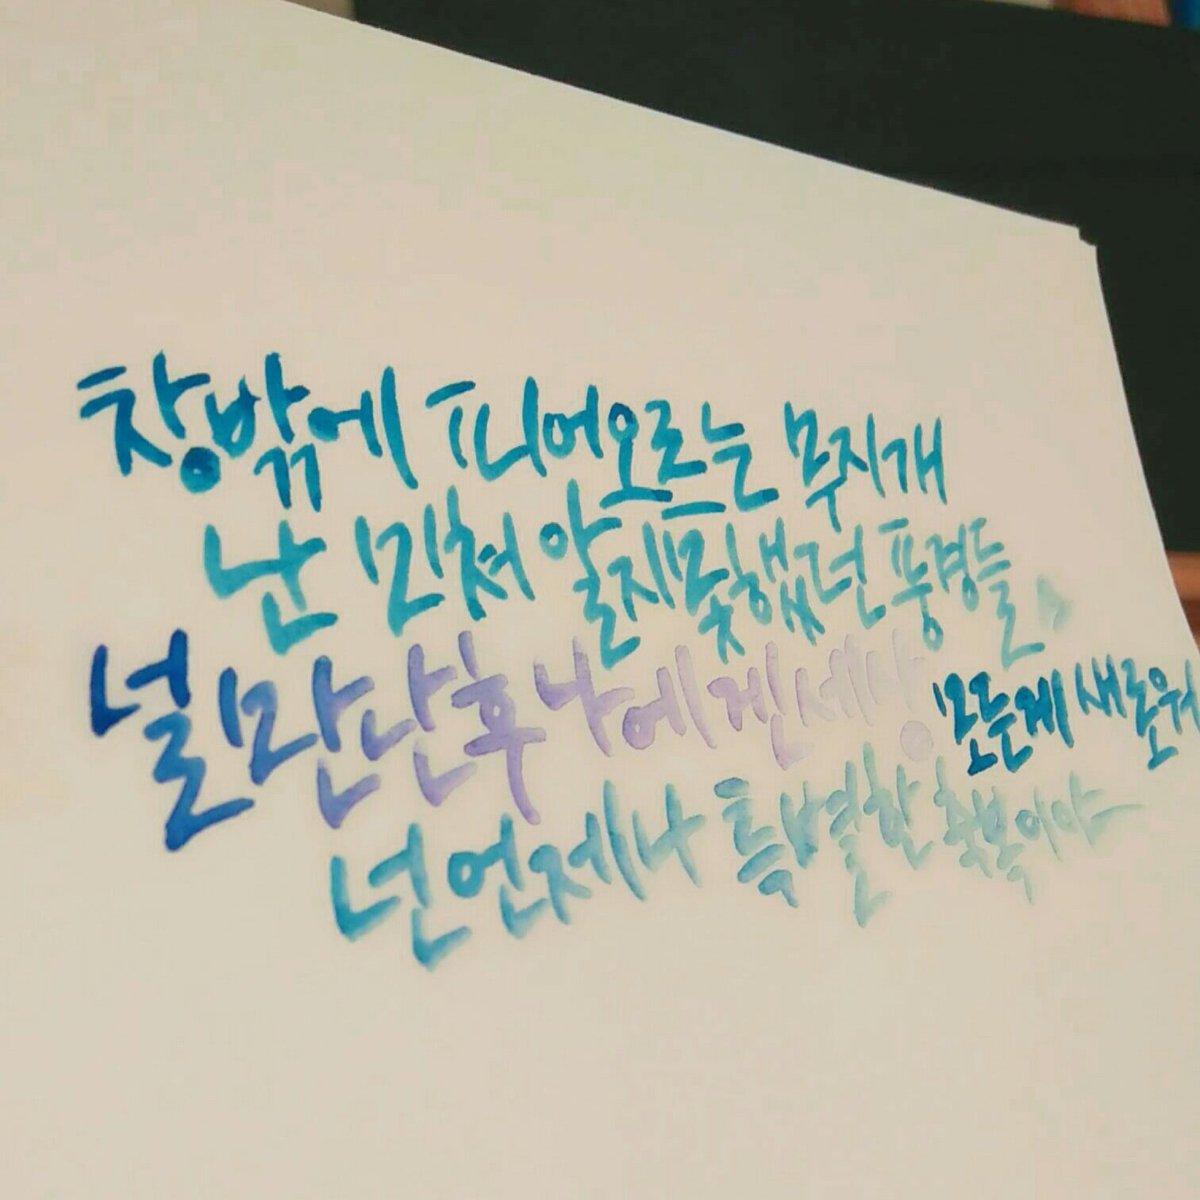 창밖에 피어오르는 무지개
난 미쳐 알지 못했던 풍경들
널 만난 후 나에겐 세상 모든 게 새로워
넌 언제나 특별한 축복이야